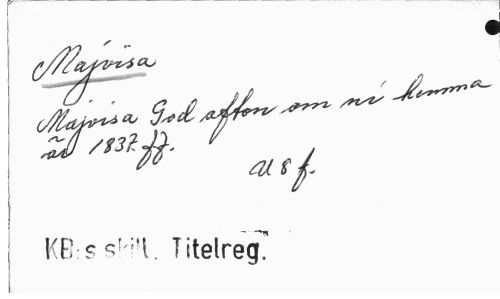 Majvisa
Majvisa God afton om ni hemma
är 1837. ff.
U 8 f.
KB:s skill. Titelreg.